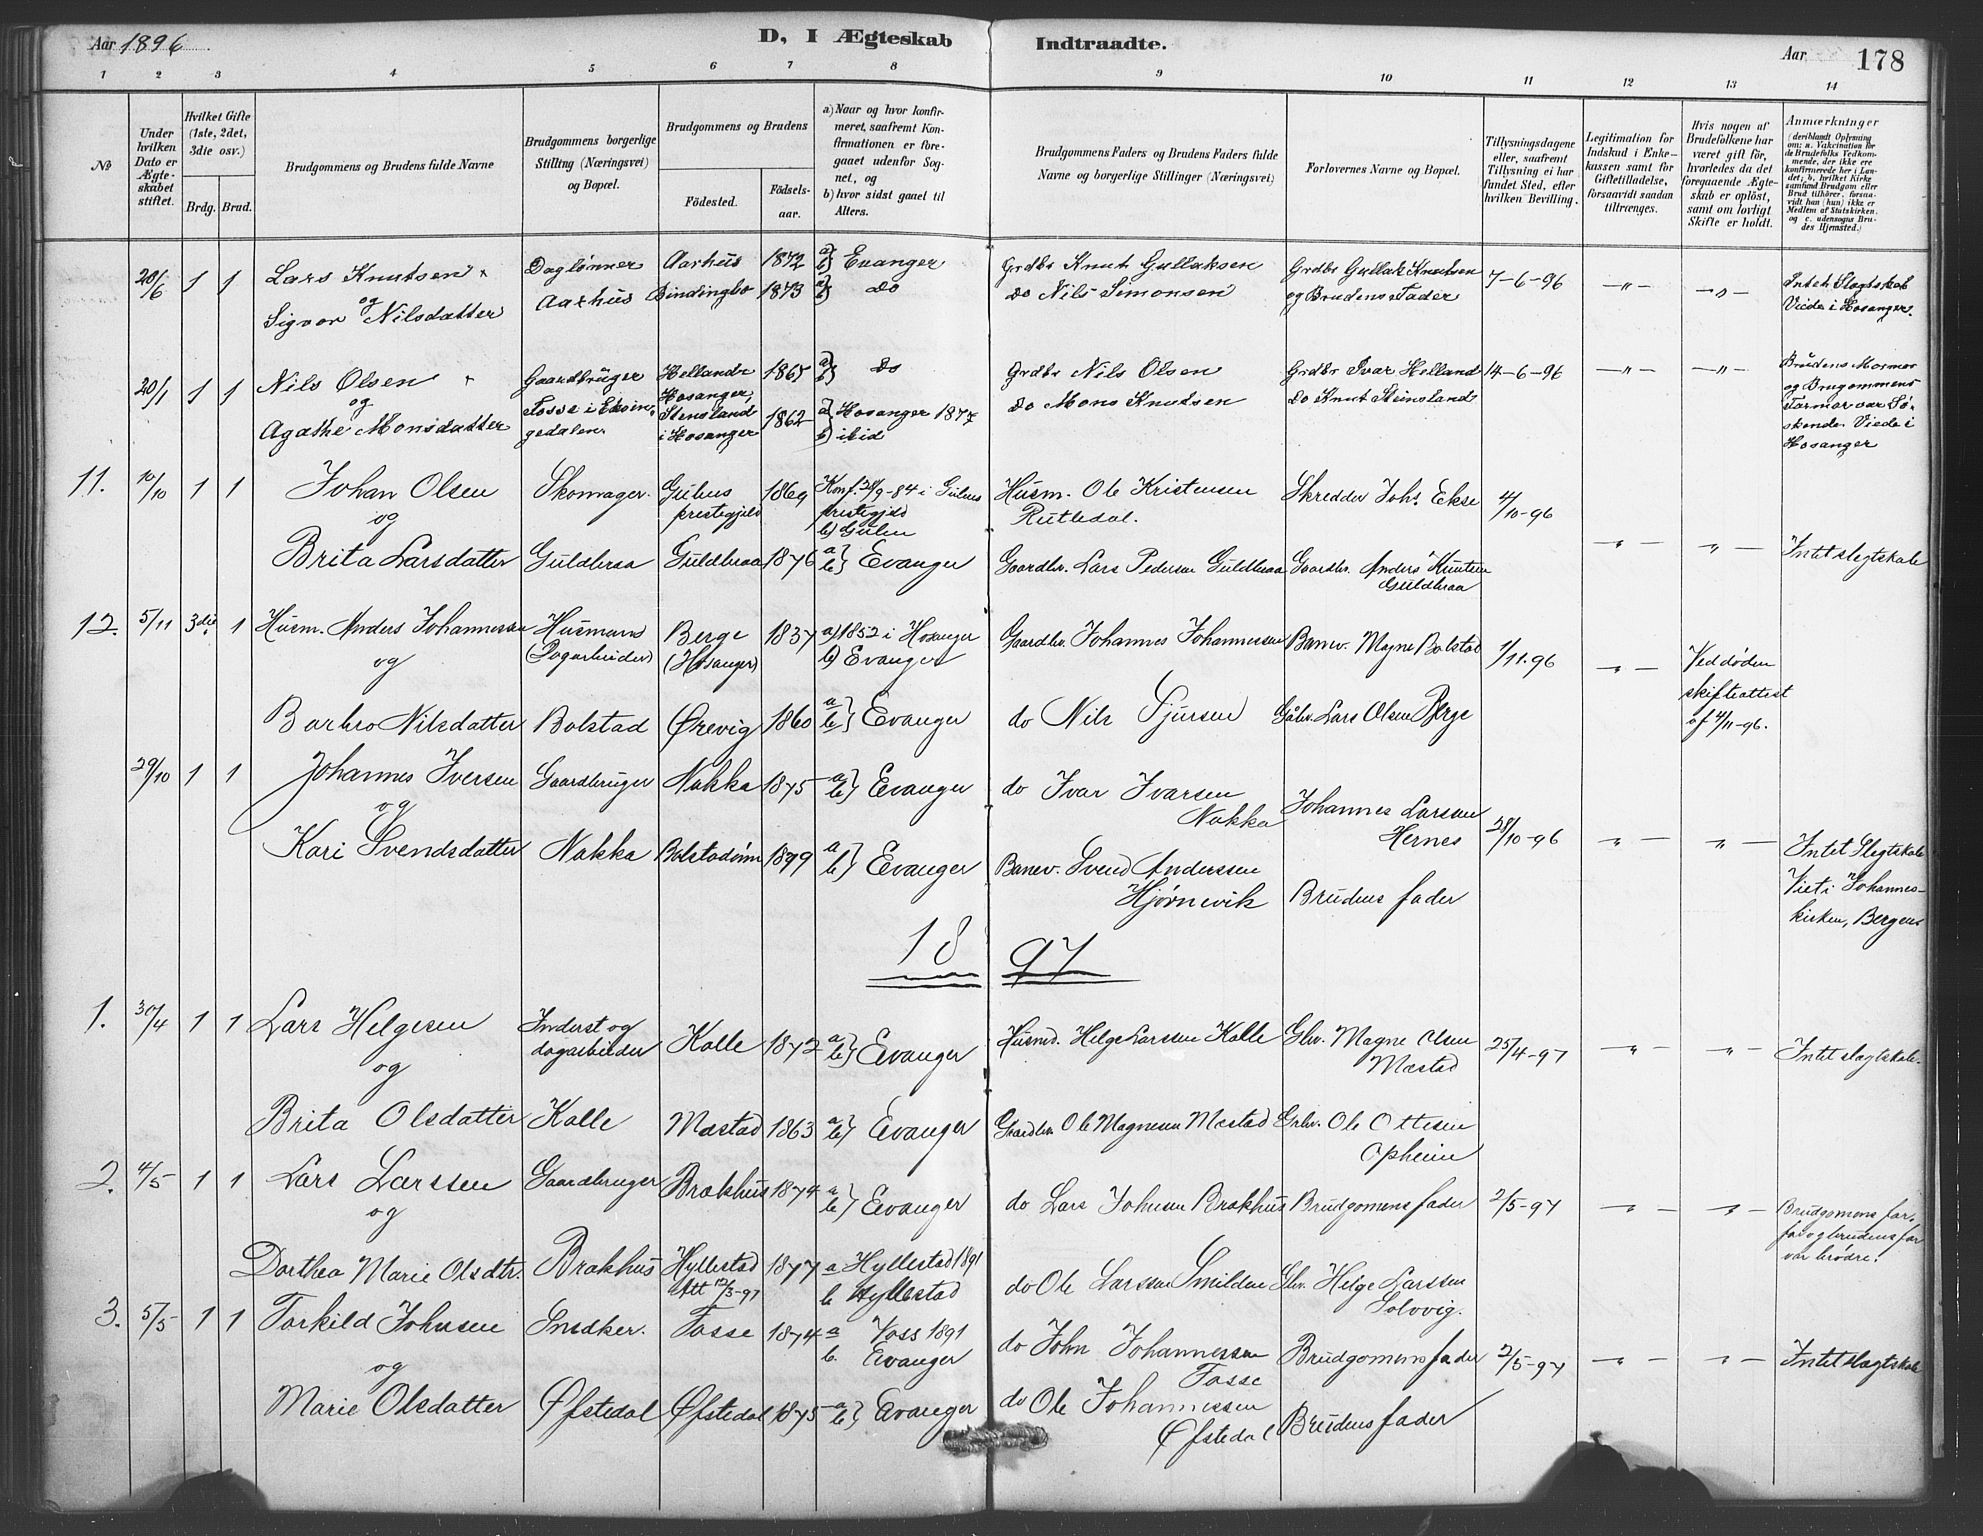 Aar 1896
D, I Ægteskab Indtraadte.
Aar
178
1 2 3 4 5 6 7 8 9 10 11 12 13 14
No
Under hvilken Dato er Ægteskabet stiftet.
Hvilket Gifte (1ste, 2det, 3die osv.)
Brdg. Brud.
Brudgommens og Brudens fulde Navne
Brudgommens borgerlige Stilling (Næringsvei) og Bopæl.
Brudgommens og Brudens
Fødested.
Fødselsaar.
a) Naar og hvor konfirmeret, saafremt Konfirmationen er foregaaet udenfor Sognet, og
b) hvor sidst gaaet til Alters.
Brudgommens Faders og Brudens Faders fulde Navne og borgerlige Stillinger (Næringsvei)
Forlovernes Navne og Bopæl.
Tillysningsdagene eller, saafremt Tillysning ei har fundet Sted, efter hvilken Bevilling.
Legitimation for Indskud i Enkekassen samt for Giftetilladelse, forsaavidt saadan tiltrænges.
Hvis nogen af Brudefolkene har været gift før, hvorledes da det foregaaende Ægteskab er opløst, samt om lovligt Skifte er holdt.
Anmærkninger
(deriblandt Oplysning om: a. Vakcination for de Brudefolks Vedkommende, der ikke ere konfirmerede her i Landet; b. hvilket Kirkesamfund Brudgom eller Brud tilhører, forsaavidt han (hun) ikke er Medlem af Statskirken, og c. udensogns Brudes Hjemsted.)
20/6 1 1 Lars Knutsen Dagлønner Aarhus 1872 a) b) Evanger Grdbr Knut Gullaksen Grdbr Gullak Knutsen 7-6-96 -"- -"- Intet Slægtskab
og Aarhus Bindingbø 1873 a) b) do do Nils Simonsen og Brudens Fader Viede i Hosanger.
Sigvor Nilsdatter
20/1 1 1 Nils Olsen Gaardbruger Helland 1865 a) b) do Grdbr Nils Olsen Grdbr Ivar Helland 14-6-96 -"- -"- Brudens Mormor
og Fosse i Eksin- Hosanger, do Mons Knutsen do Knut Steinsland og Brugommens
Agathe Monsdatter gedalen Stensland 1862 a) Hosanger 1877 Farmor var Sø-
i Hosanger b) ibid skende. Viede i
Hosanger
11. 10/10 1 1 Johan Olsen Skomager. Gulens 1869 Konf. 28/9-84 i Gulens Husm. Ole Kristensen Skredder Johs. Ekse 4/10-96
og prestegjeld prestegjeld Rutledal.
b) Gulen
Brita Larsdatter Guldbraa Guldbraa 1876 a b} Evanger Gaardbr. Lars Pedersen Guldbraa Gaardbr. Anders Knutsen -"- -"- Intet slegtskab
Guldbraa
12. 5/11 3die 1 Husm. Anders Johannessen Husmand Berge 1837 a) 1852 i Hosanger Gaardbr. Johannes Johannessen Banev. Magne Bolstad 1/11.96 -"- Ved døden
og (Dagarbeider) (Hosanger) b) Evanger skifteattest
Barbro Nilsdatter Bolstad Ørevig 1860 a b} Evanger do Nils Sjursen Gdbr. Lars Olsen Berge af 4/11-96.
29/10 1 1 Johannes Iversen Gaardbruger Nakka 1875 a b} Evanger do Ivar Ivarsen Johannes Larsen 28/10-96 -"- -"- Intet Slegtskab
og Nakka Hernes
Kari Svendsdatter Nakka Bolstadøren 1899 a b} Evanger Banev. Svend Anderssen Viet i Johannes-
Hjørnevik Brudens fader kirken, Bergen
1897
1. 30/4 1 1 Lars Helgesen Inderst og Kalle 1872 a b} Evanger Husmd. Helge Larssen Kalle Gbr. Magne Olsen 25/4-97 -"- -"- Intet slegtskab.
og dagarbeider Mæstad
Brita Olsdatter Kalle Mæstad 1863 a b} Evanger Gaardbr. Ole Magnesen Mæstad Grbr. Ole Ottesen
Opheim
2. 4/5 1 1 Lars Larssen Gaardbruger Brakhus 1874 a b} Evanger do Lars Johnsen Brakhus Brudgomens fader 2/5-97 -"- -"- Brudgomens far-
og far og brudens far
Dorthea Marie Olsdtr. Brakhus Hyllestad 1877 a Hyllestad 1891 do Ole Larssen Smilden Gbr. Helge Larssen var brødre.
Att 12/3-97 b Hyllestad Solvvig.
3. 5/5 1 1 Torkild Johnsen Snedker. Fosse 1874 a Voss 1891 do John Johannessen Brudgomens fader 2/5-97 -"- -"- Intet slegtskab
og b. Evanger Fosse
Marie Olsdatter Øfstedal Øfstedal 1875 a b} Evanger do Ole Johannessen Brudens fader
Øfstedal